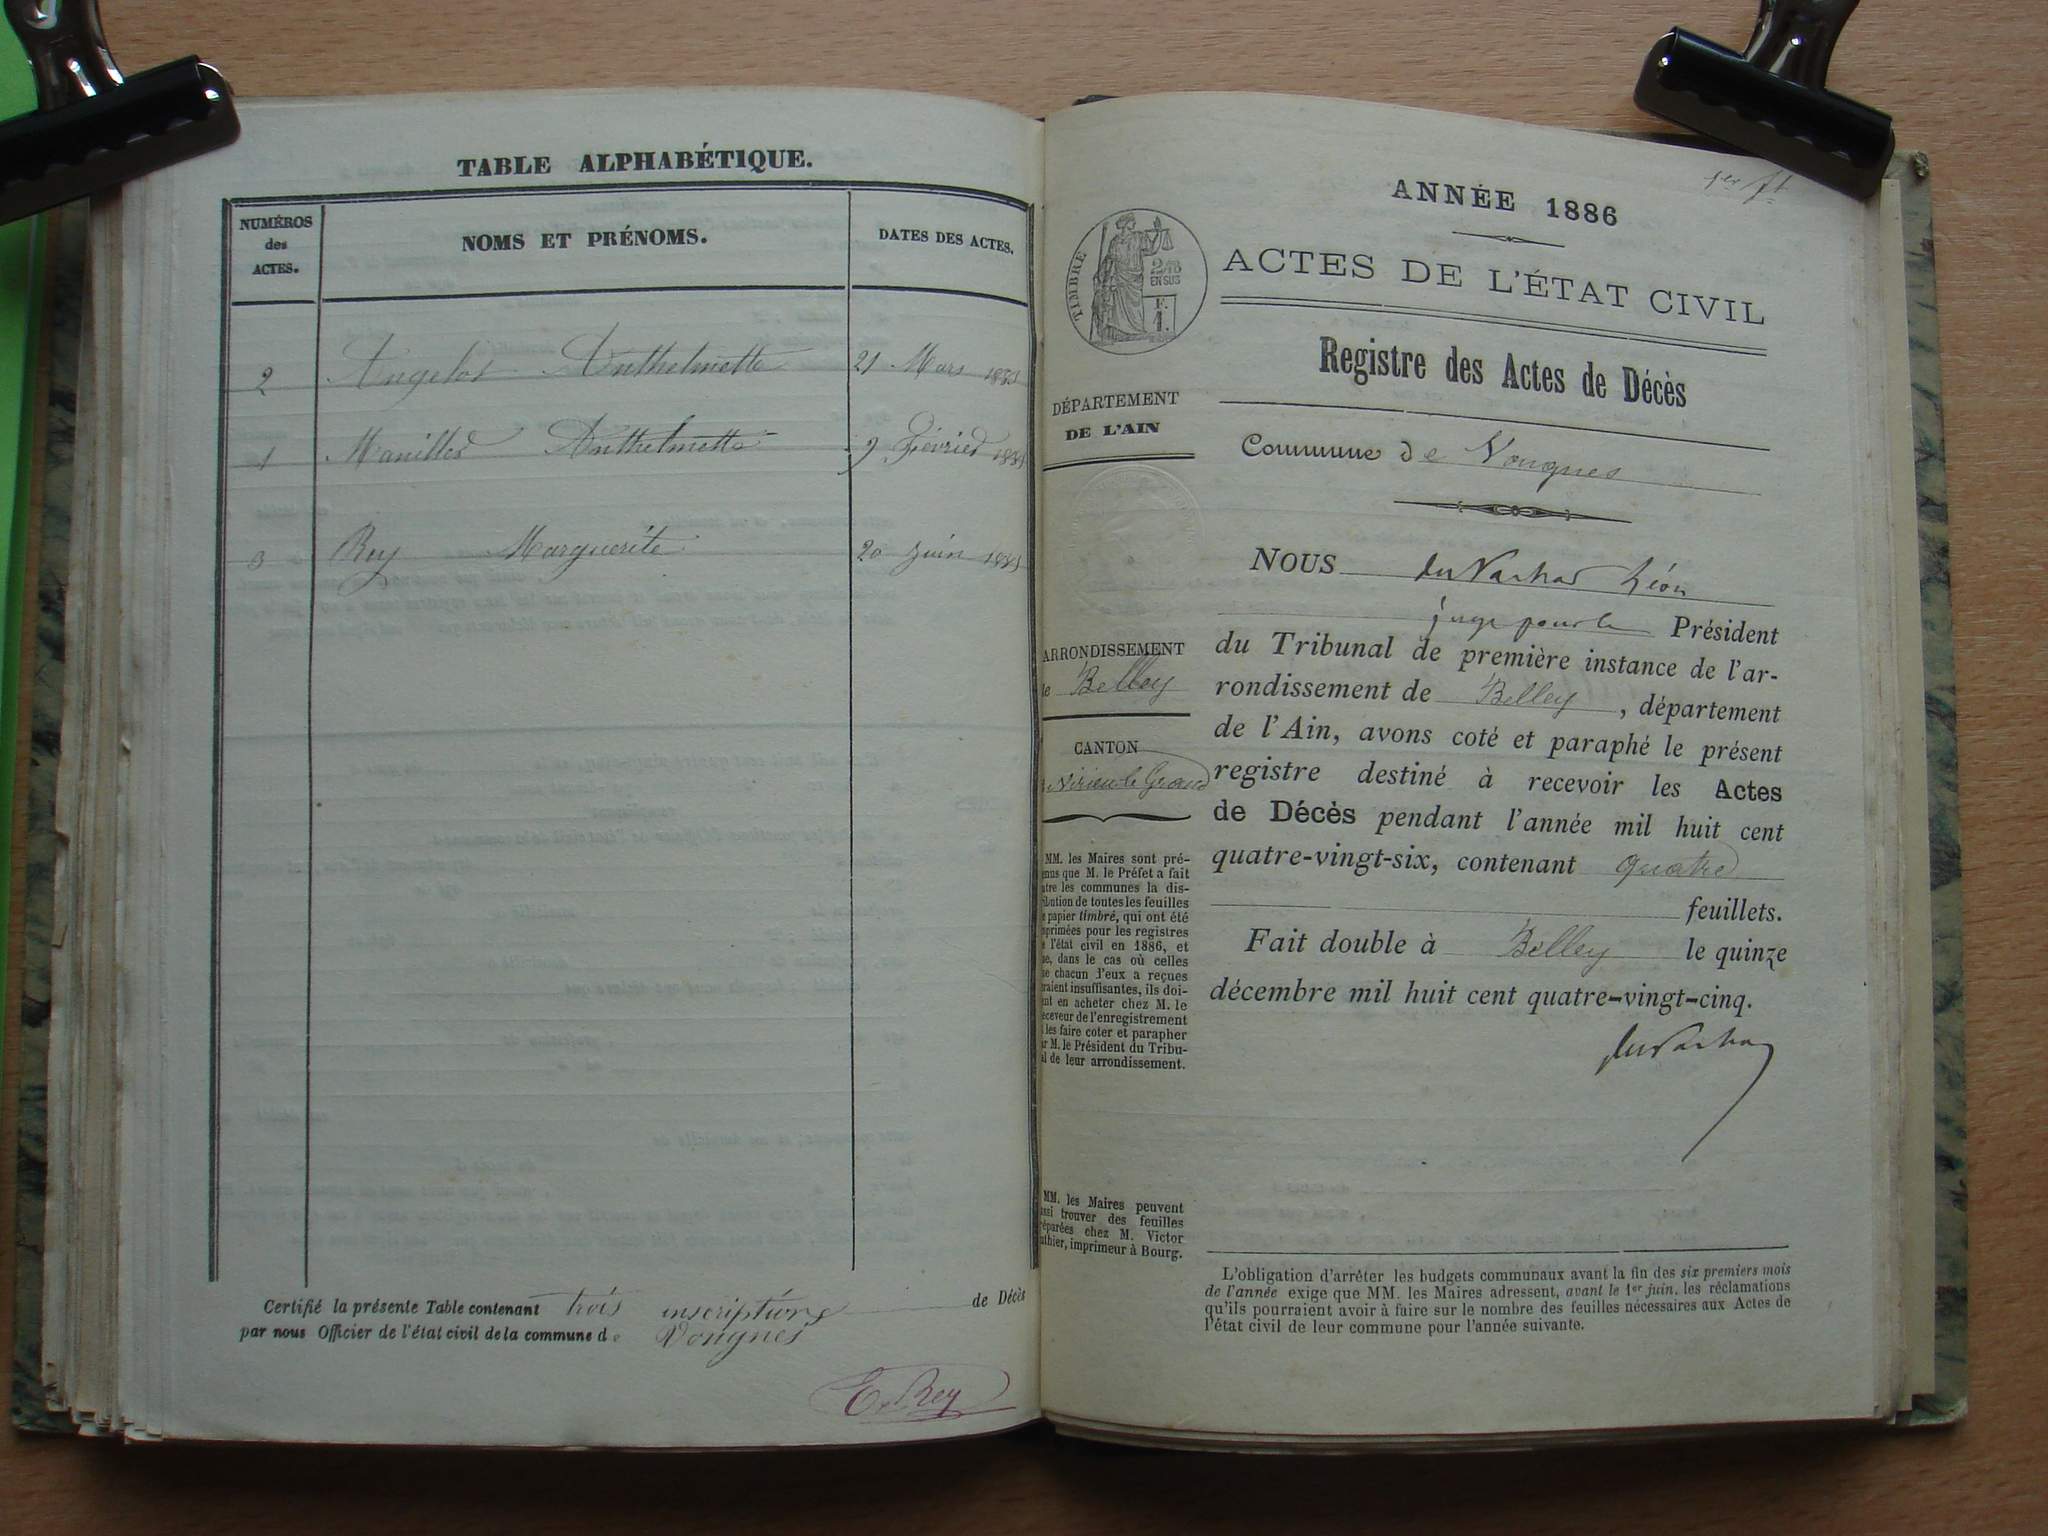 TABLE ALPHABÉTIQUE.
NUMÉROS
des
ACTES.
NOMS ET PRÉNOMS.
DATES DES ACTES.
2 Angelot Anthelmette 21 Mars 1885
1 Manillet Anthelmette 9 Février 1885
3 Rey Marguerite 20 Juin 1885
Certifié la présente Table contenant trois inscriptions de Décès
par nous Officier de l'état civil de la commune de Vongnes
E. Rey
1er ft
ANNÉE 1886
TIMBRE
2/10
EN SUS
F.
1.
ACTES DE L'ÉTAT CIVIL
Registre des Actes de Décès
DÉPARTEMENT
DE L'AIN
Commune de Vongnes
ARRONDISSEMENT
de Belley
CANTON
Virieu-le-Grand
MM. les Maires sont pré-
nus que M. le Préfet a fait
tre les communes la dis-
ibution de toutes les feuilles
e papier timbré, qui ont été
primées pour les registres
e l'état civil en 1886, et
ue, dans le cas où celles
ue chacun d'eux a reçues
raient insuffisantes, ils doi-
nt en acheter chez M. le
eceveur de l'enregistrement
les faire coter et parapher
ar M. le Président du Tribu-
al de leur arrondissement.
MM. les Maires peuvent
ussi trouver des feuilles
réparées chez M. Victor
uthier, imprimeur à Bourg.
NOUS Léon
juge pour le Président
du Tribunal de première instance de l'ar-
rondissement de Belley, département
de l'Ain, avons coté et paraphé le présent
registre destiné à recevoir les Actes
de Décès pendant l'année mil huit cent
quatre-vingt-six, contenant quatre
feuillets.
Fait double à Belley le quinze
décembre mil huit cent quatre-vingt-cinq.
L'obligation d'arrêter les budgets communaux avant la fin des six premiers mois
de l'année exige que MM. les Maires adressent, avant le 1er juin, les réclamations
qu'ils pourraient avoir à faire sur le nombre des feuilles nécessaires aux Actes de
l'état civil de leur commune pour l'année suivante.